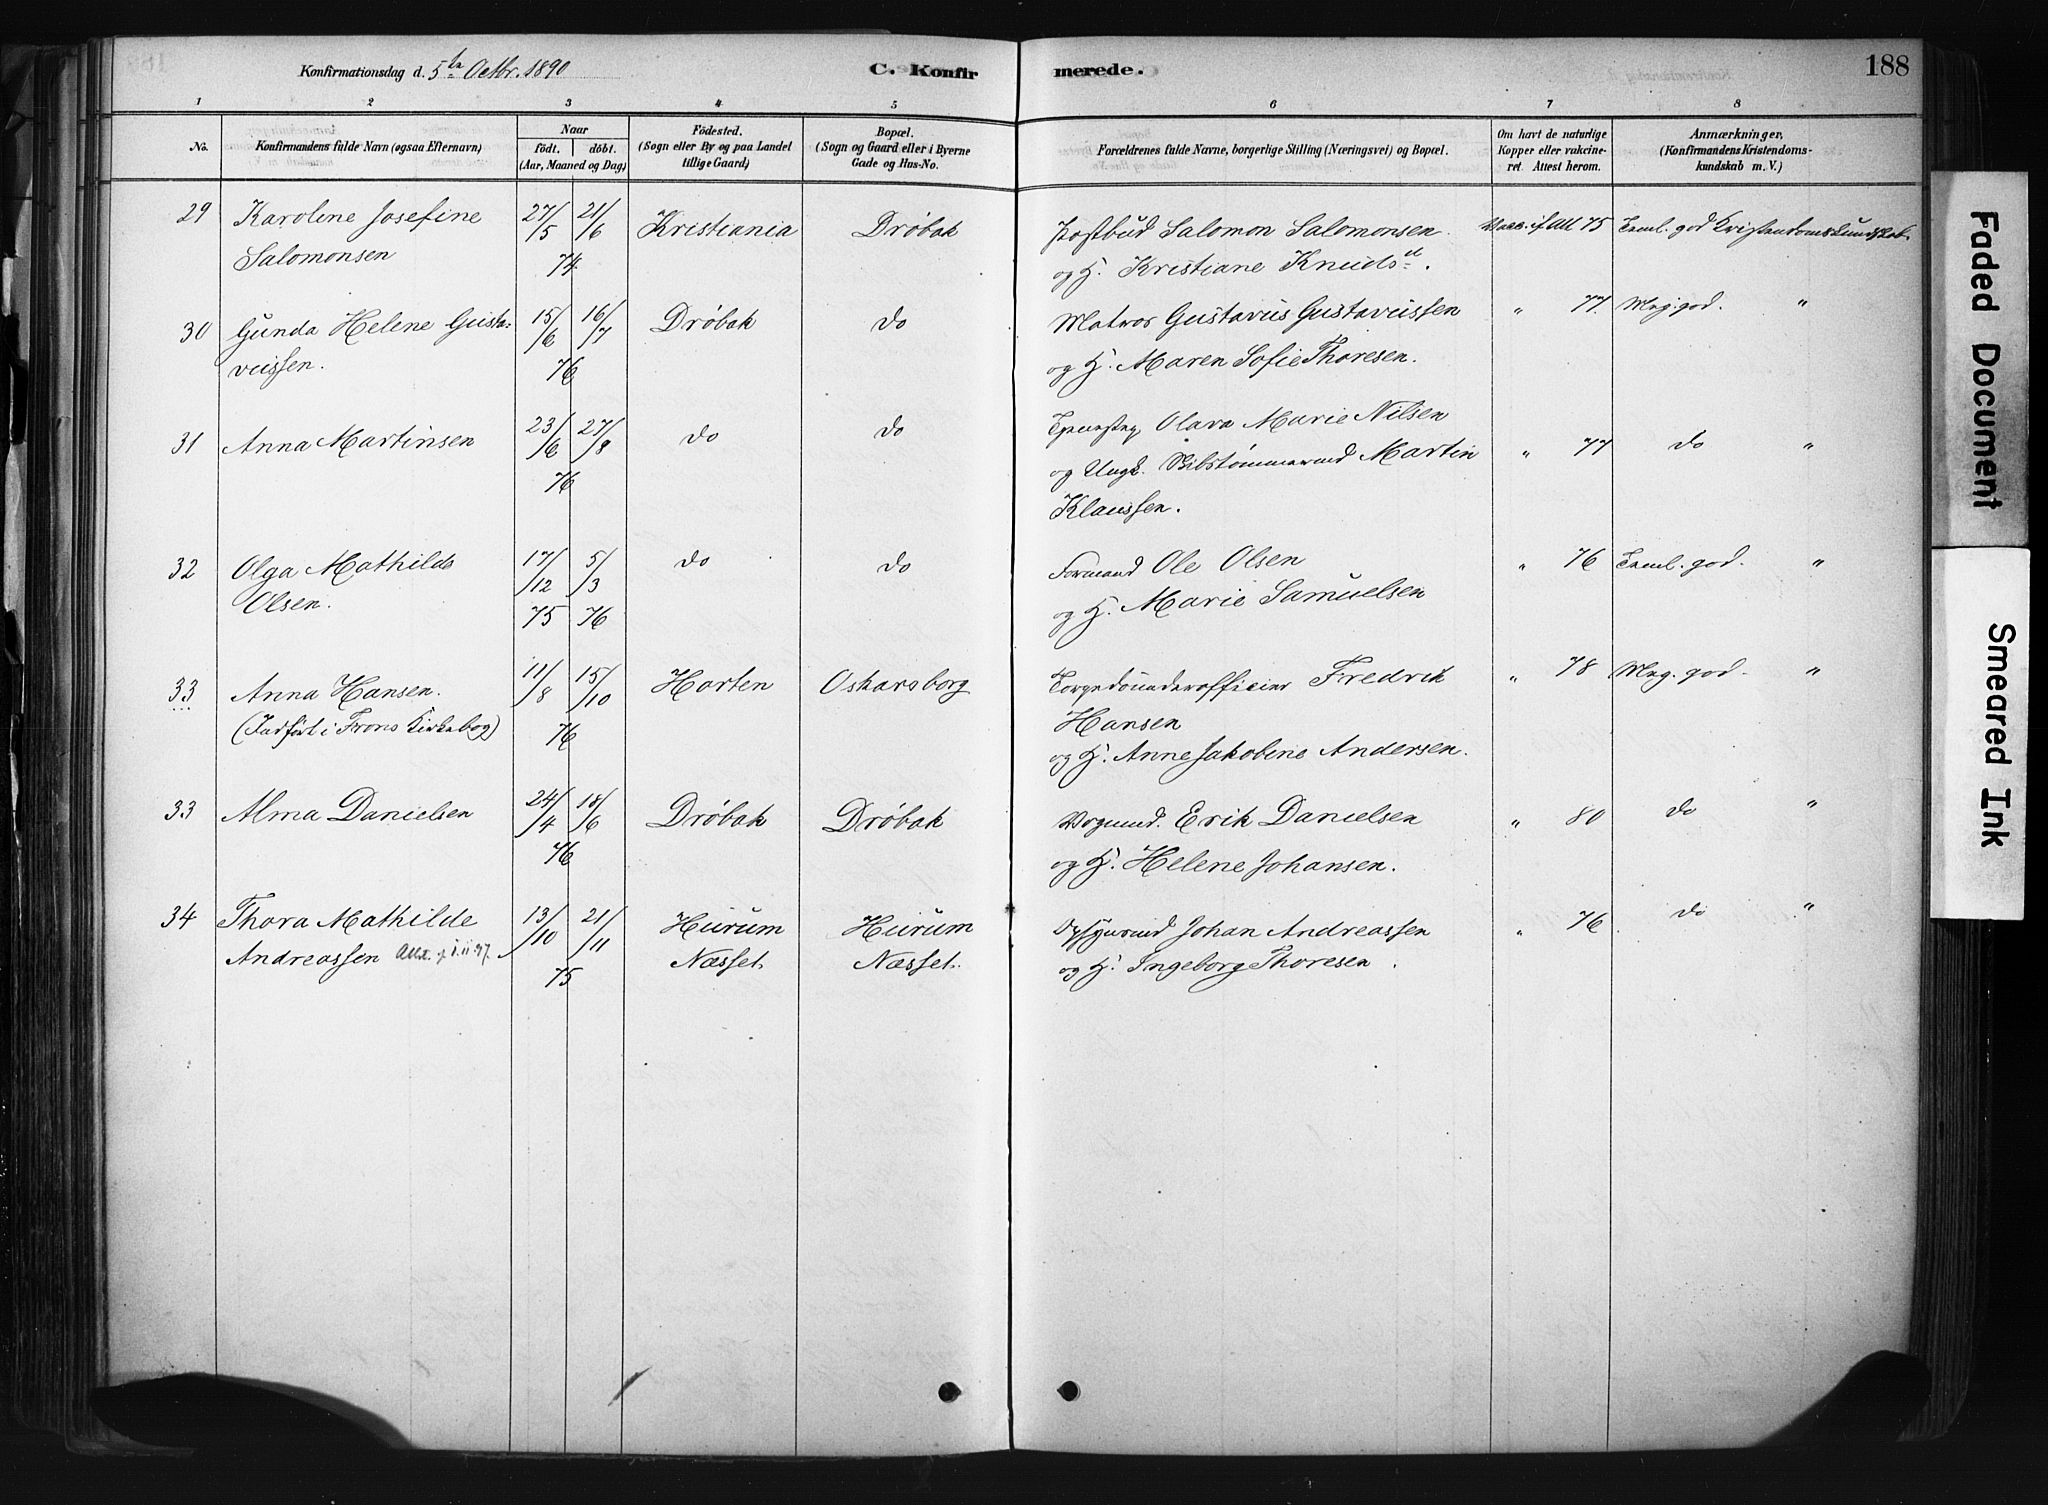 Konfirmationsdag d. 5te Octbr. 1890
C. Konfir merede.
188
1 2 3 4 5 6 7 8
No.
Konfirmandens fulde Navn (ogsaa Efternavn)
Naar
födt. döbt.
(Aar, Maaned og Dag)
Födested.
(Sogn eller By og paa Landet
tillige Gaard)
Bopæl.
(Sogn og Gaard eller i Byerne
Gade og Hus-No.
Forældrenes fulde Navne, borgerlige Stilling (Næringsvei) og Bopæl.
Om havt de naturlige
Kopper eller vakcine-
ret. Attest herom.
Anmærkninger,
(Konfirmandens Kristendoms-
kundskab m. V.)
29 Karoline Josefine 27/5 21/6 Kristiania Drøbak Postbud Salomon Salomonsen. Vacc. if Att 75 Teml. god Kristendomskundskab.
Salomonsen 74. og H. Kristiane Knudsdt.
30 Gunda Helene Gusta- 15/6 16/7 Drøbak do Matros Gustavus Gustavussen " 77. Meg. god. "
vussen. 76 og H. Maren Sofie Thoresen.
31 Anna Martinsen 23/6 27/8 do do Tjenestep. Olava Marie Nilsen
76 og Ungk. Skibstømmermd Martin " 77 do "
Klaussen.
32 Olga Mathilde 17/12 5/3 do do Formand Ole Olsen " 76 Teml. god. "
Olsen. 75 76 og H. Marie Samuelsen
33 Anna Hansen. 11/8 15/10 Horten Oskarsborg Torpedounderofficier Fredrik " 78 Meg. god. "
(Indført i Frons Kirkebog) 76 Hansen
og H. Anne Jakobine Andersen.
33 Alma Danielsen 24/4 18/6 Drøbak Drøbak Vognmd. Erik Danielsen " 80 do "
76 og H. Helene Johansen.
34 Thora Mathilde 13/10 21/11 Hurum Hurum Johan Andreassen " 76 do "
Andreassen 75 Næsset. Næsset. og H. Ingeborg Thoresen.
Faded Document
Smeared Ink